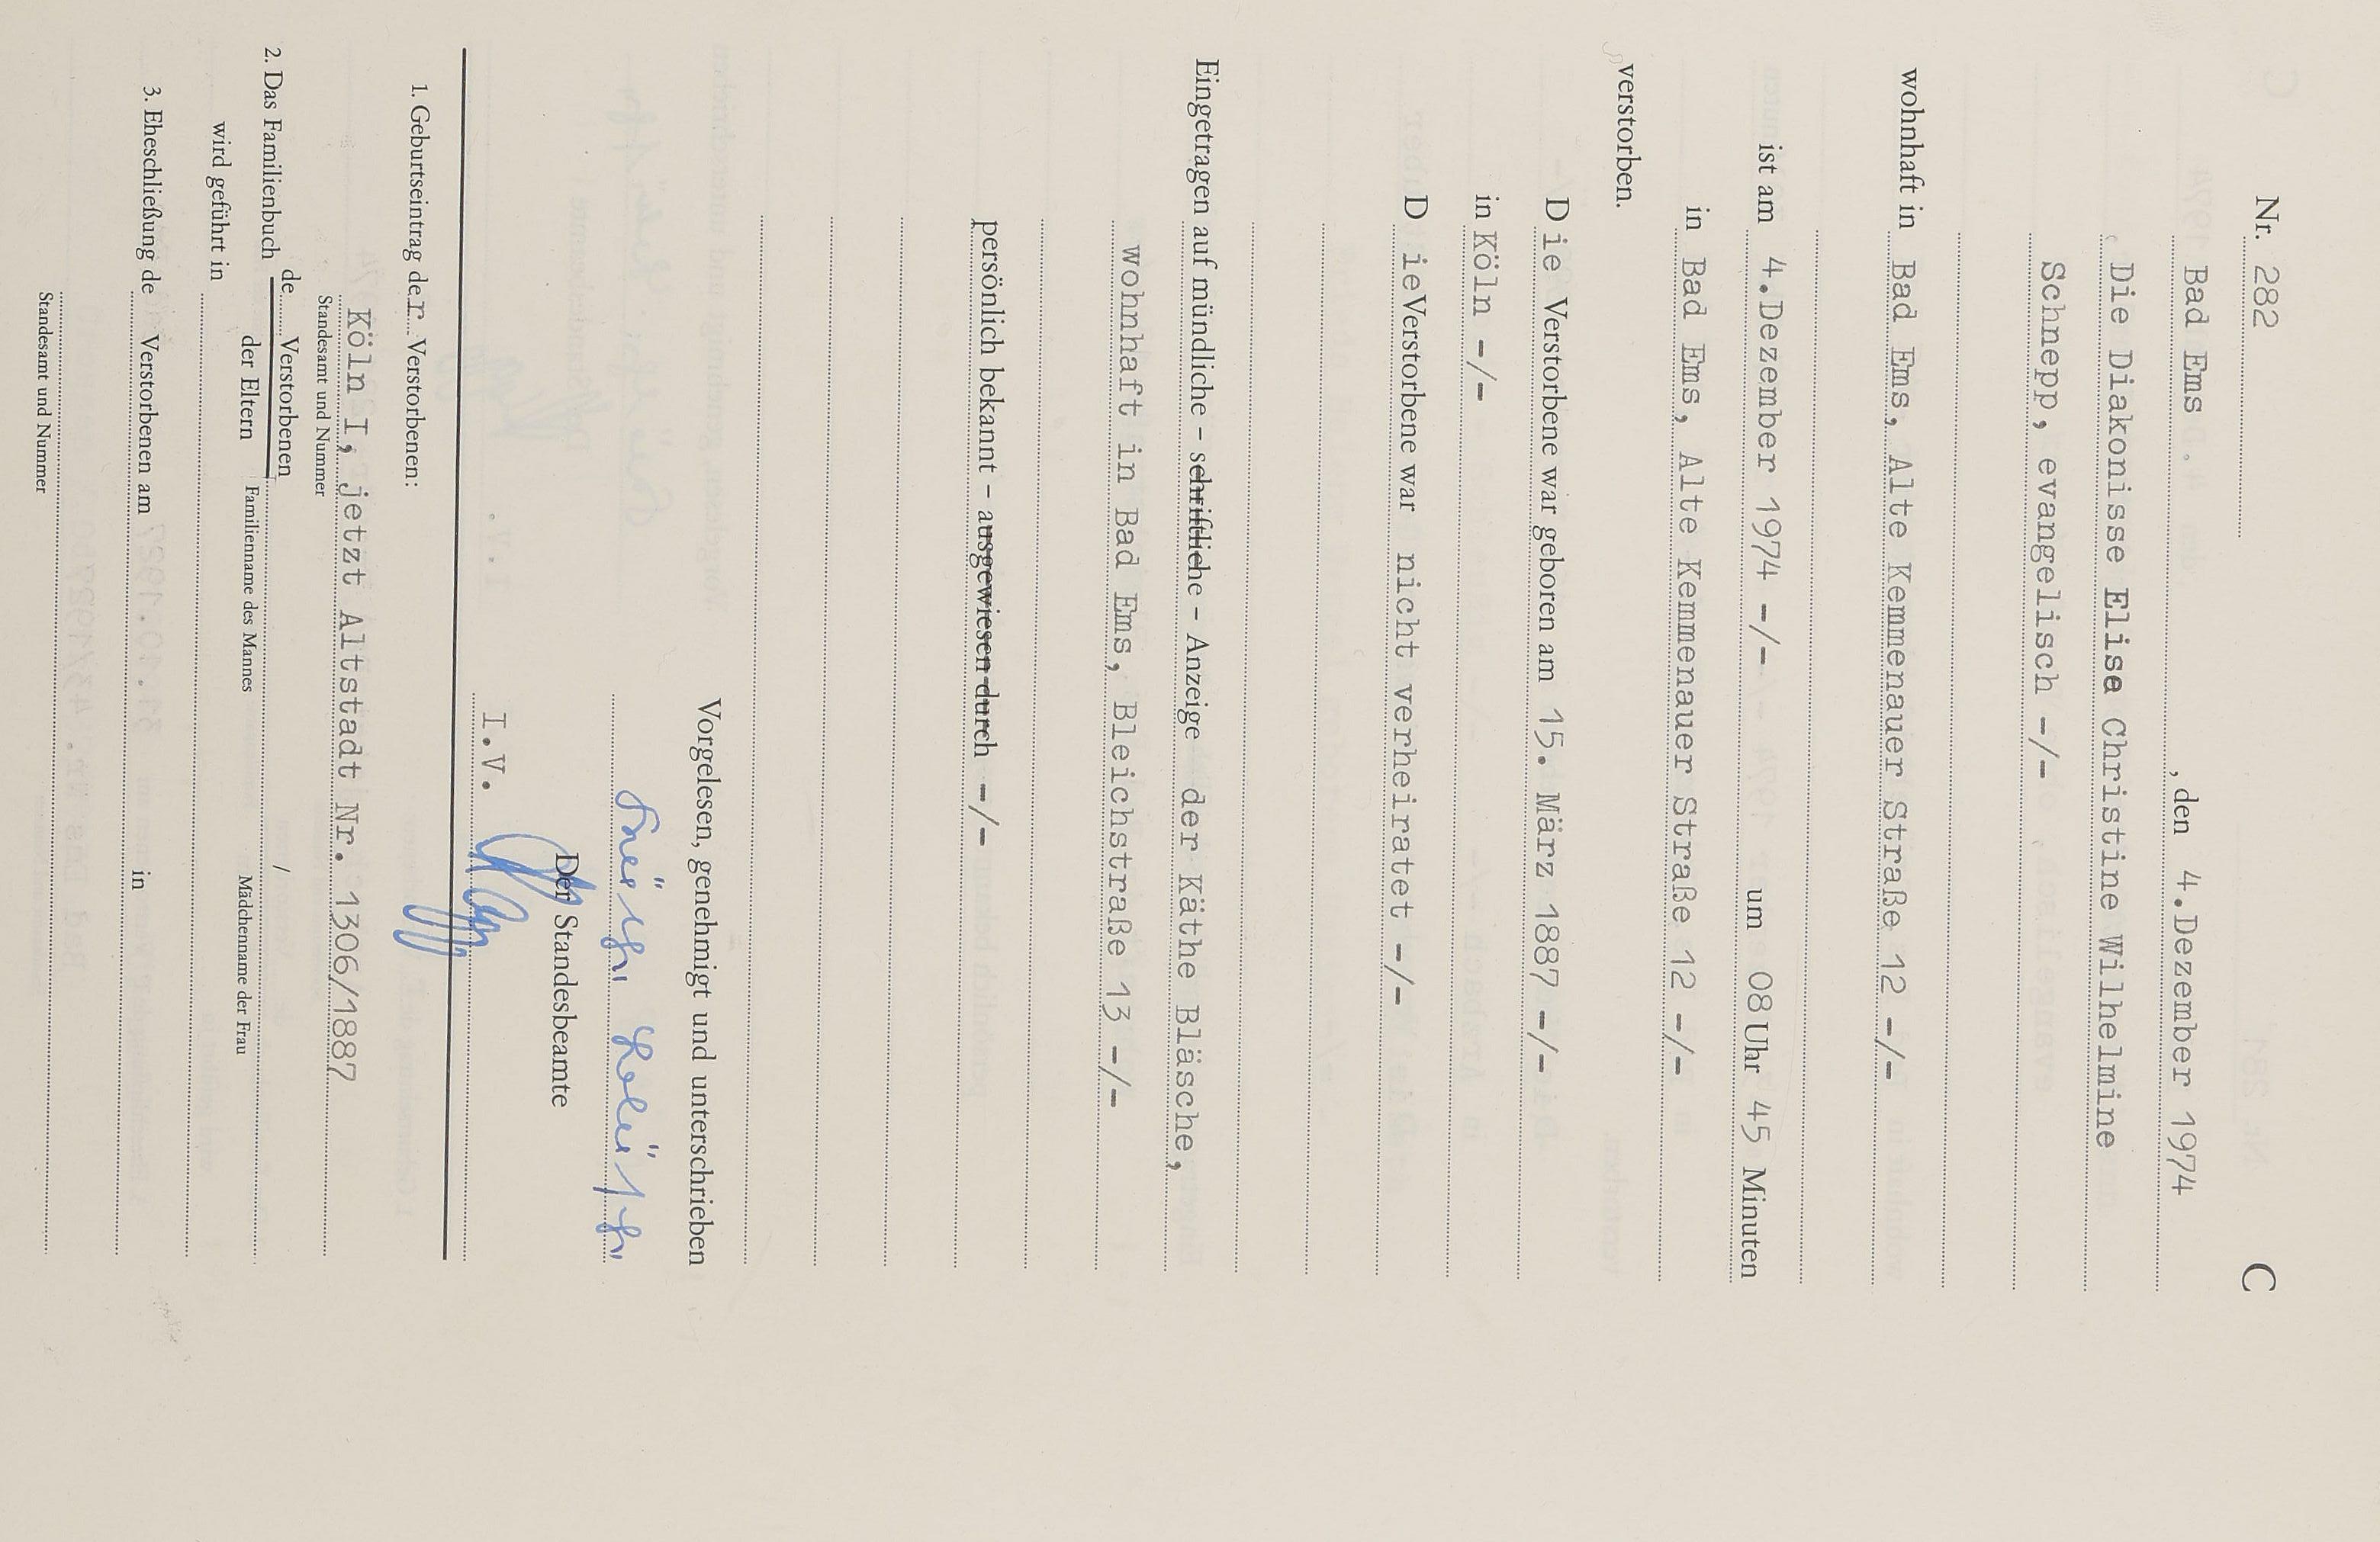 Nr. 282 C
Bad Ems , den 4.Dezember 1974
Die Diakonisse Elise Christine Wilhelmine
Schnepp, evangelisch -/-
wohnhaft in Bad Ems, Alte Kemmenauer Straße 12 -/-
ist am 4.Dezember 1974 -/- um 08 Uhr 45 Minuten
in Bad Ems, Alte Kemmenauer Straße 12 -/-
verstorben.
D ie Verstorbene war geboren am 15. März 1887 -/-
in Köln -/-
D ie Verstorbene war nicht verheiratet -/-
Eingetragen auf mündliche - schriftliche - Anzeige der Käthe Bläsche,
wohnhaft in Bad Ems, Bleichstraße 13 -/-
persönlich bekannt - ausgewiesen durch -/-
Vorgelesen, genehmigt und unterschrieben
Der Standesbeamte
I.V.
1. Geburtseintrag der Verstorbenen:
Köln I, jetzt Altstadt Nr. 1306/1887
Standesamt und Nummer
2. Das Familienbuch de Verstorbenen /
der Eltern Familienname des Mannes Mädchenname der Frau
wird geführt in
3. Eheschließung de Verstorbenen am in
Standesamt und Nummer